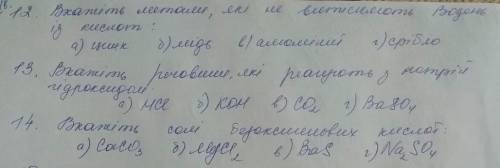 12. Вкажіть метали, які не витісняють Водень
із кислот:
а) цинк б) мидь в) алюміній г) срібло
13. Вкажіть речовини, які реагують з натрій
гідроксидом
а) HCl б) KOH в) CO2 г) BaSO4
14. Вкажіть солі безоксигенових кислот:
а) CaCO3 б) MgCl2 в) BaS г) Na2SO4